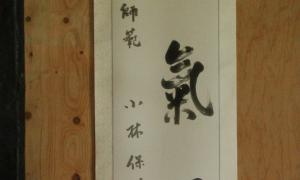 氣
師範 小林保